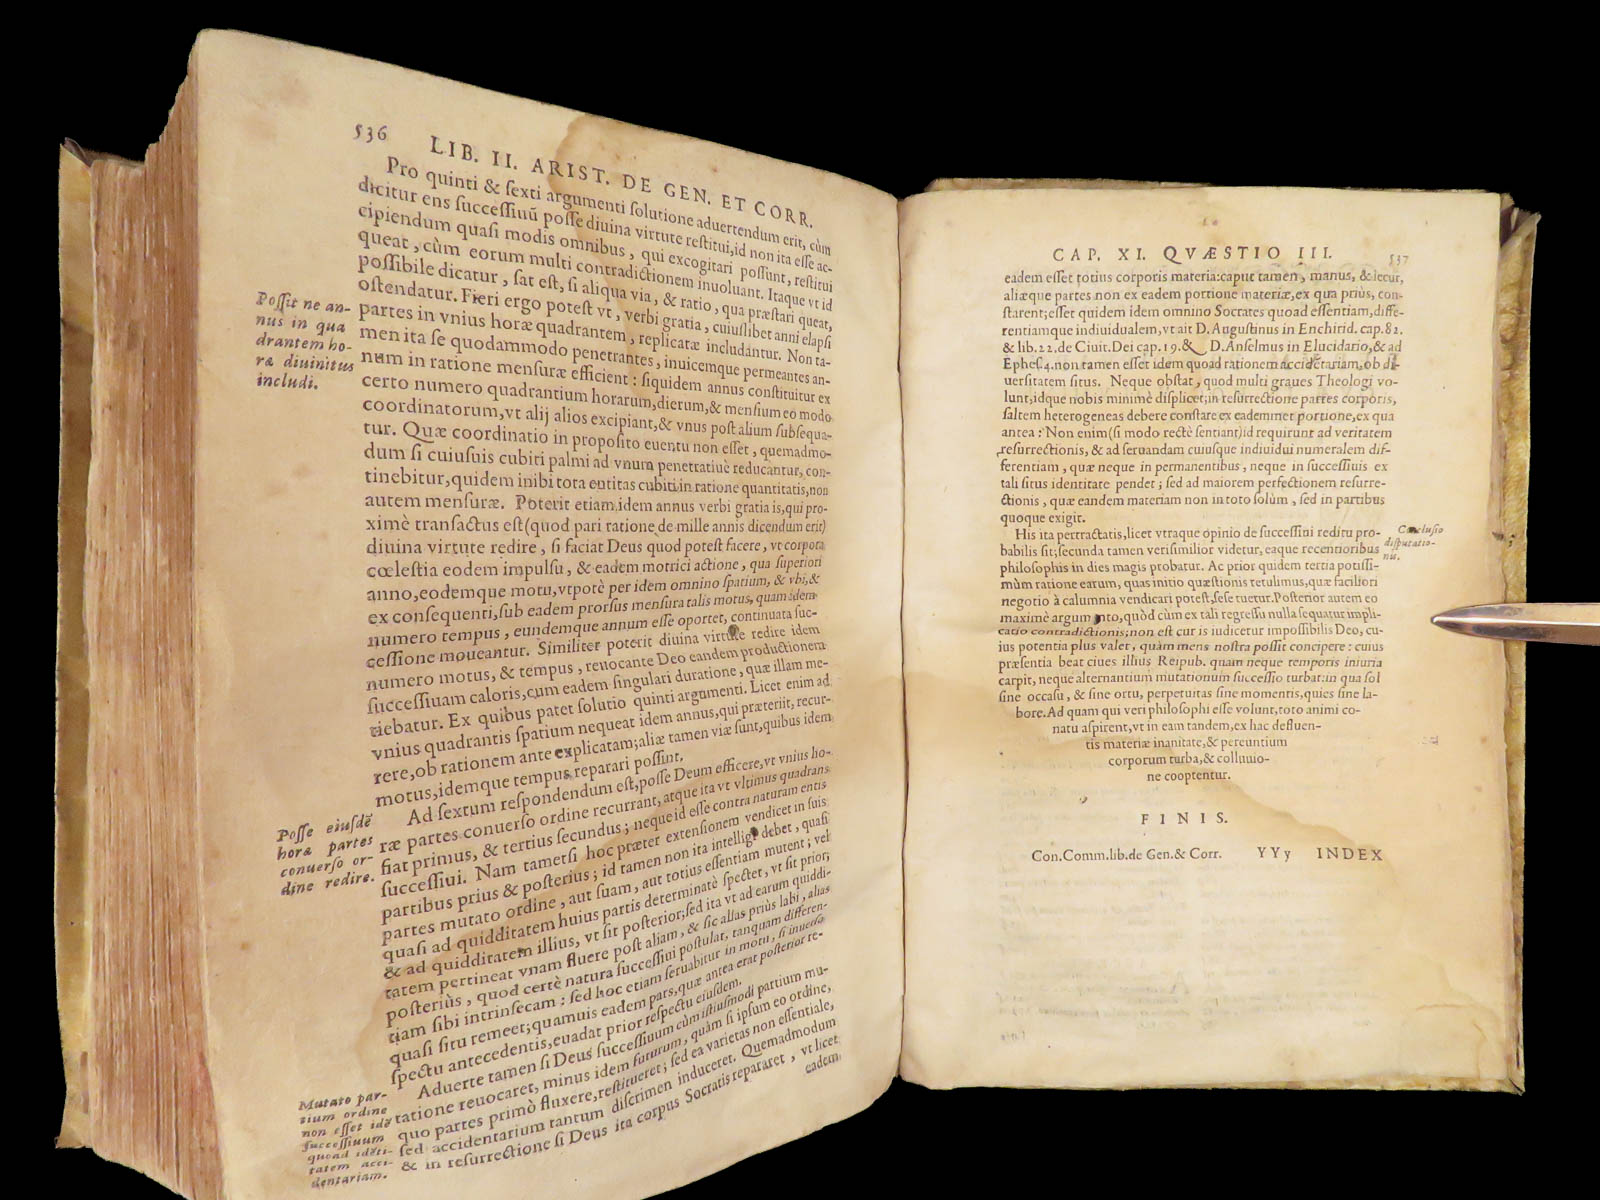 536
LIB. II. ARIST. DE GEN. ET CORR.
Pro quinti & sexti argumenti solutione aduertendum erit, cùm
dicitur ens successiuũ posse diuina virtute restitui, id non ita esse ac-
cipiendum quasi modis omnibus, qui excogitari possunt, restitui
queat, cùm eorum multi contradictionem inuoluant. Itaque vt id
possibile dicatur, sat est, si aliqua via, & ratio, qua præstari queat,
ostendatur. Fieri ergo potest vt, verbi gratia, cuiuslibet anni elapsi
partes in vnius horæ quadrantem, replicatæ includantur. Non ta-
men ita se quodammodo penetrantes, inuicemque permeantes an-
num in ratione mensuræ efficient: siquidem annus constituitur ex
certo numero quadrantium horarum, dierum, & mensium eo modo
coordinatorum, vt alij alios excipiant, & vnus post alium subsequa-
tur. Quæ coordinatio in proposito euentu non esset, quemadmo-
dum si cuiusuis cubiti palmi ad vnum penetratiuè reducantur, con-
tinebitur, quidem inibi tota entitas cubiti in ratione quantitatis, non
autem mensuræ. Poterit etiam idem annus verbi gratia is, qui pro-
ximè transactus est (quod pari ratione de mille annis dicendum erit)
diuina virtute redire, si faciat Deus quod potest facere, vt corpora
cœlestia eodem impulsu, & eadem motrici actione, qua superiori
anno, eodemque motu, vtpotè per idem omnino spatium, & vbi, &
ex consequenti, sub eadem prorsus mensura talis motus, quam idem
numero tempus, eundemque annum esse oportet, continuata suc-
cessione moueantur. Similiter poterit diuina virtute redire idem
numero motus, & tempus, reuocante Deo eandem productionem
successiuam caloris, cum eadem singulari duratione, quæ illam me-
tiebatur. Ex quibus patet solutio quinti argumenti. Licet enim ad
vnius quadrantis spatium nequeat idem annus, qui præteriit, recur-
rere, ob rationem ante explicatam; aliæ tamen viæ sunt, quibus idem
motus, idemque tempus reparari possint.
Ad sextum respondendum est, posse Deum efficere, vt vnius ho-
ræ partes conuerso ordine recurrant, atque ita vt vltimus quadrans
fiat primus, & tertius secundus; neque id esse contra naturam entis
successiui. Nam tametsi hoc præter extensionem vendicet in suis
partibus prius & posterius; id tamen non ita intelligi debet, quasi
partes mutato ordine, aut suam, aut totius essentiam mutent; vel
quasi ad quidditatem huius partis determinatè spectet, vt sit prior;
& ad quidditatem illius, vt sit posterior; sed ita vt ad earum quiddi-
tatem pertineat vnam fluere post aliam, & sic alias priùs labi, alias
posteriùs, quod certè natura successiui postulat, tanquam differen-
tiam sibi intrinsecam: sed hoc etiam seruabitur in motu, si inuerso
quasi situ remeet; quamuis eadem pars, quæ antea erat posterior re-
spectu antecedentis, euadat prior respectu eiusdem.
Aduerte tamen si Deus successiuum cùm istiusmodi partium mu-
tatione reuocaret, minus idem futurum, quàm si ipsum eo ordine,
quo partes primò fluxere, restitueret; sed ea varietas non essentiale,
sed accidentarium tantum discrimen induceret. Quemadmodum
& in resurrectione si Deus ita corpus Socratis repararet, vt licet
eadem
Possit ne an-
nus in qua
drantem ho-
ræ diuinitus
includi.
Posse eiusdẽ
horæ partes
conuerso or-
dine redire.
Mutato par-
tium ordine
non esset idẽ
successiuum
quoad idẽti-
tatem acci-
dentariam.
CAP. XI. QVÆSTIO III.
537
eadem esset totius corporis materia: caput tamen, manus, & iecur,
aliæque partes non ex eadem portione materiæ, ex qua priùs, con-
starent; esset quidem idem omnino Socrates quoad essentiam, diffe-
rentiamque indiuidualem, vt ait D. Augustinus in Enchirid. cap. 82.
& lib. 22. de Ciuit. Dei cap. 19. & D. Anselmus in Elucidario, & ad
Ephes. 4. non tamen esset idem quoad rationem accidẽtariam, ob di-
uersitatem situs. Neque obstat, quod multi graues Theologi vo-
lunt, idque nobis minimè displicet, in resurrectione partes corporis,
saltem heterogeneas debere constare ex eademmet portione, ex qua
antea: Non enim (si modo rectè sentiant) id requirunt ad veritatem
resurrectionis, & ad seruandam cuiusque indiuidui numeralem dif-
ferentiam, quæ neque in permanentibus, neque in successiuis ex
tali situs identitate pendet; sed ad maiorem perfectionem resurre-
ctionis, quæ eandem materiam non in toto solùm, sed in partibus
quoque exigit.
His ita pertractatis, licet vtraque opinio de successiui reditu pro-
babilis sit; secunda tamen verisimilior videtur, eaque recentioribus
philosophis in dies magis probatur. Ac prior quidem tertia potissi-
mùm ratione earum, quas initio quæstionis tetulimus, quæ faciliori
negotio à calumnia vendicari potest, sese tuetur. Posterior autem eo
maximè argum nto, quòd cùm ex tali regressu nulla sequatur impli-
catio contradictionis; non est cur is iudicetur impossibilis Deo, cu-
ius potentia plus valet, quàm mens nostra possit concipere: cuius
præsentia beat ciues illius Reipub. quam neque temporis iniuria
carpit, neque alternantium mutationum successio turbat: in qua sol
sine occasu, & sine ortu, perpetuitas sine momentis, quies sine la-
bore. Ad quam qui veri philosophi esse volunt, toto animi co-
natu aspirent, vt in eam tandem, ex hac defluen-
tis materiæ inanitate, & pereuntium
corporum turba, & colluuio-
ne cooptentur.
Conclusio
disputatio-
nis.
FINIS.
Con. Comm. lib. de Gen. & Corr. YYy INDEX